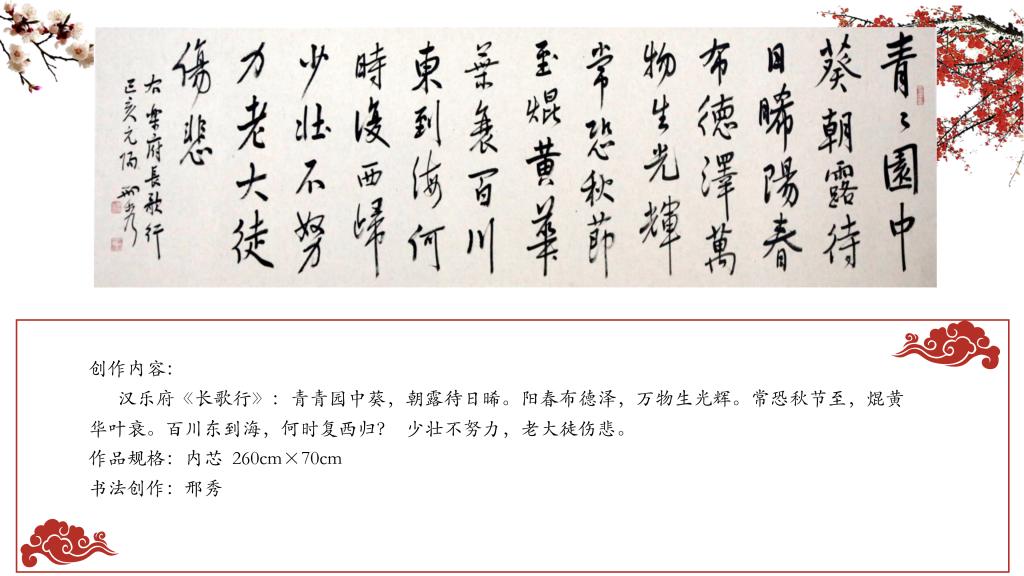 青〻園中
葵朝露待
日晞陽春
布德澤萬
物生光輝
常恐秋節
至焜黄華
葉衰百川
東到海何
時復西歸
少壯不努
力老大徒
傷悲
右樂府長歌行
己亥元陽 邢秀
创作内容：
汉乐府《长歌行》：青青园中葵，朝露待日晞。阳春布德泽，万物生光辉。常恐秋节至，焜黄
华叶衰。百川东到海，何时复西归？ 少壮不努力，老大徒伤悲。
作品规格：内芯 260cm×70cm
书法创作：邢秀